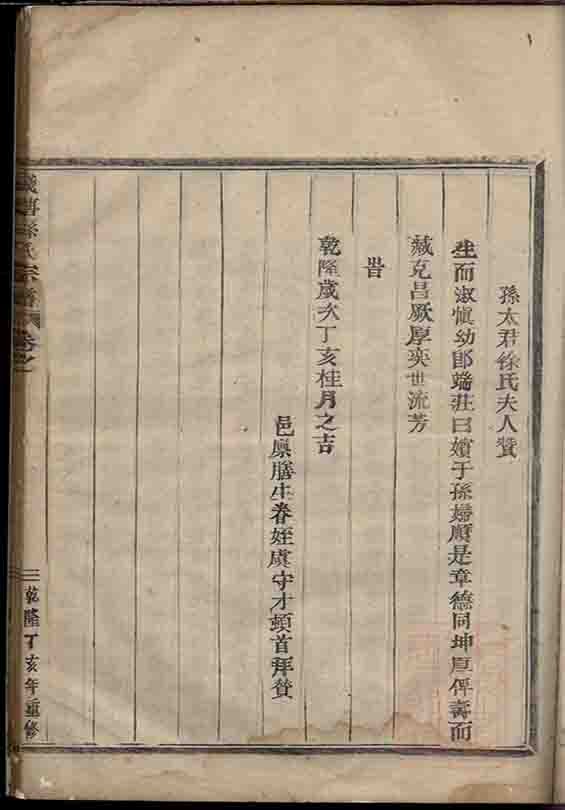 孫太君徐氏夫人贊
生而淑慎幼郎端莊曰嬪于孫婦順是章德同坤厚俾壽而
臧克昌厥厚奕世流芳
旹
乾隆歲次丁亥桂月之吉
邑廩膳生眷姪虞守才頓首拜贊
孫氏宗譜 卷之
乾隆丁亥年重修